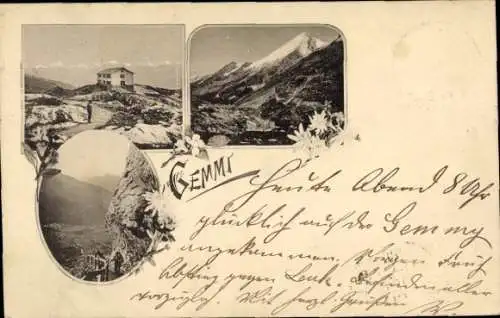 GEMMI
Heute Abend 8 Uhr
glücklich auf der Gemmy
angekommen. Morgen Früh
Abstieg gegen Leuk. Befinden aller
vorzüglich. Mit herzl. Grüßen